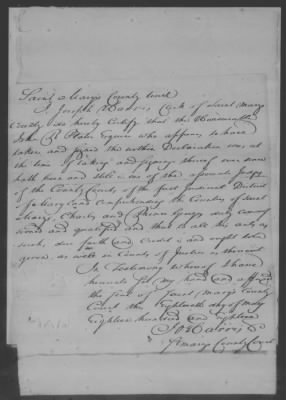 Saint Marys County Court
I Joseph Harris, Clerk of Saint Marys
County do hereby Certify that the Honourable
John R Plater Esquire who appears to have
taken and signed the within Declaration was, at
the time of taking and signing thereof was and now
both here and still is one of the associate Judges
of the County Courts of the first Judicial District
of Maryland Comprehending the Counties of Saint
Marys, Charles and Prince Georges duly commis
sioned and qualified and that to all his acts as
such, due faith and Credit is and ought to be
given, as well in Courts of Justice as thereout
In Testimony whereof I have
hereunto set my hand and affixed
the seal of Saint Marys County
Court the Eighteenth day of May
Eighteen hundred and Eighteen
Jo Harris Clk
St Marys County Court